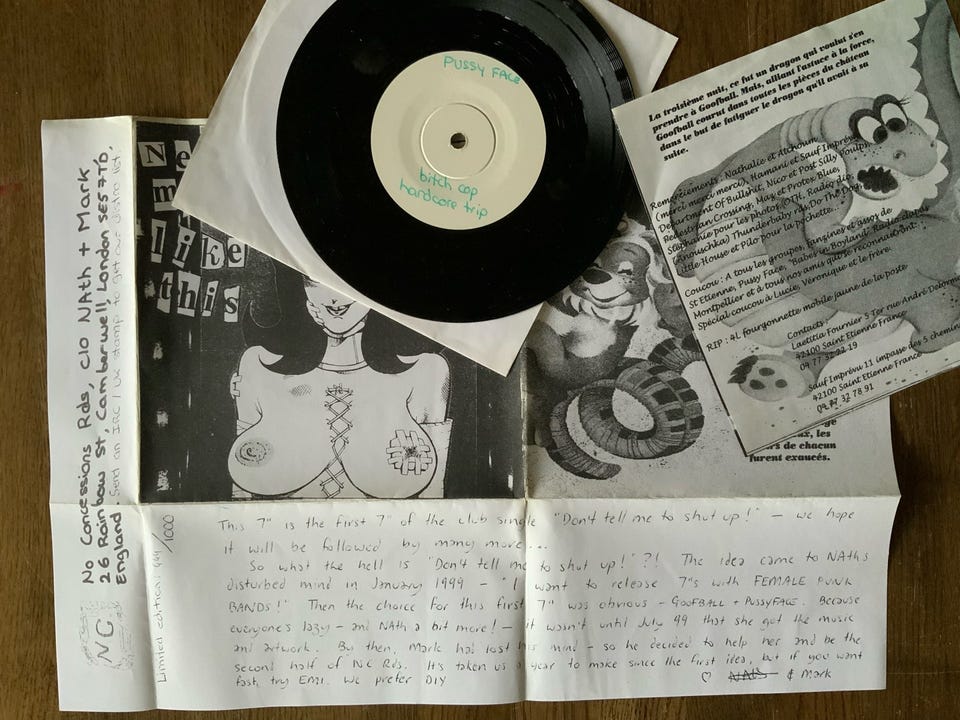 PUSSY FACE
bitch cop
hardcore trip
like
this
La troisième nuit, ce fut un dragon qui voulut s'en
prendre à Goofball. Mais, alliant l'astuce à la force,
Goofball courut dans toutes les pièces du château
dans le but de fatiguer le dragon qu'il avait à sa
suite.
Remerciements : Nathalie et Atchoum
(merci merci merci), Hamani et Sauf Imprévu
Department Of Bullshit, Nico et Post Silly
Pedestrian Crossing, Max et Protex Blue,
Stéphanie pour les photos, OTH, Radio dio,
(Anouschka) Thunderbaby rds, Do The Dog,
Little House et Pilo pour la pochette...
Coucou : A tous les groupes, fanzines et assos de
St Etienne, Pussy Face, "Babes in Boyland"
Montpellier et à tous nos amis qui se reconnaîtront.
Spécial coucou à Lucie, Véronique et le frère.
RIP : 4L fourgonnette mobile jaune de la poste
Contacts :
Laetitia Fournier 5 Ter rue André
42100 Saint Etienne France
04 77 32 22 19
Sauf Imprévu 11 impasse des 5 chemins
42100 Saint Etienne France
04 77 32 78 91
les
de chacun
furent exaucés.
No Concessions Rds, C/O NAth + Mark
26 Rainbow st, Camberwell, London SE5 7TD,
England. Send an IRC / UK stamp to get our distro list.
NC
Limited edition /1000
This 7" is the first 7" of the club single "Don't tell me to shut up!" – we hope
it will be followed by many more...
So what the hell is "Don't tell me to shut up!"?! The idea came to NAth's
disturbed mind in January 1999 – "I want to release 7"s with FEMALE PUNK
BANDS!" Then the choice for this first 7" was obvious – GOOFBALL + PUSSYFACE. Because
everyone's lazy – and NAth a bit more! – it wasn't until July 99 that she got the music
and artwork. By then, Mark had lost his mind – so he decided to help her and be the
second half of NC Rds. It's taken us a year to make since the first idea, but if you want
fast, try EMI. We prefer DIY
♡ NAth & Mark